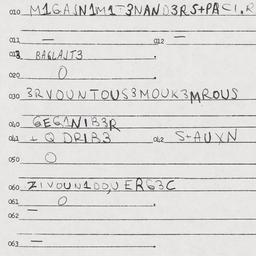 010 M1GASN1M1T3NAND3RS+PACI.R
011 — 012 —
013 BAGLAJT3
020 O
030 3RVOUNTOUS3MOUK3MROUS
040 GEG1NIB3R
041 + Q DRIB3 042 S+AUXN
050 O
060 ZIVOUN1OO,UERG3C
061 O
062 —
063 —